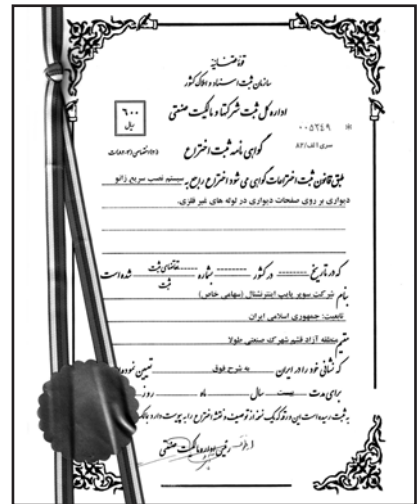 قوه قضائیه
سازمان ثبت اسناد و املاک کشور
اداره کل ثبت شرکتها و مالکیت صنعتی
۶۰۰
ریال
۰۰۵۲۴۹
سری الف/۸۲
گواهی نامه ثبت اختراع
طبق قانون ثبت اختراعات گواهی می شود اختراع راجع به سیستم نصب سریع زانو
دیواری بر روی صفحات دیواری در لوله های غیر فلزی.
که در تاریخ در کشور بشماره تقاضای ثبت شده است
ثبت
بنام شرکت سوپر پایپ اینترنشنال (سهامی خاص)
تابعیت: جمهوری اسلامی ایران
مقیم منطقه آزاد قشم شهرک صنعتی طولا
که نشانی خود را در ایران به شرح فوق تعیین نموده
برای مدت بیست سال ماه روز
به ثبت رسیده است این ورقه که یک نسخه از توصیف و نقشه اختراع را به پیوست دارد